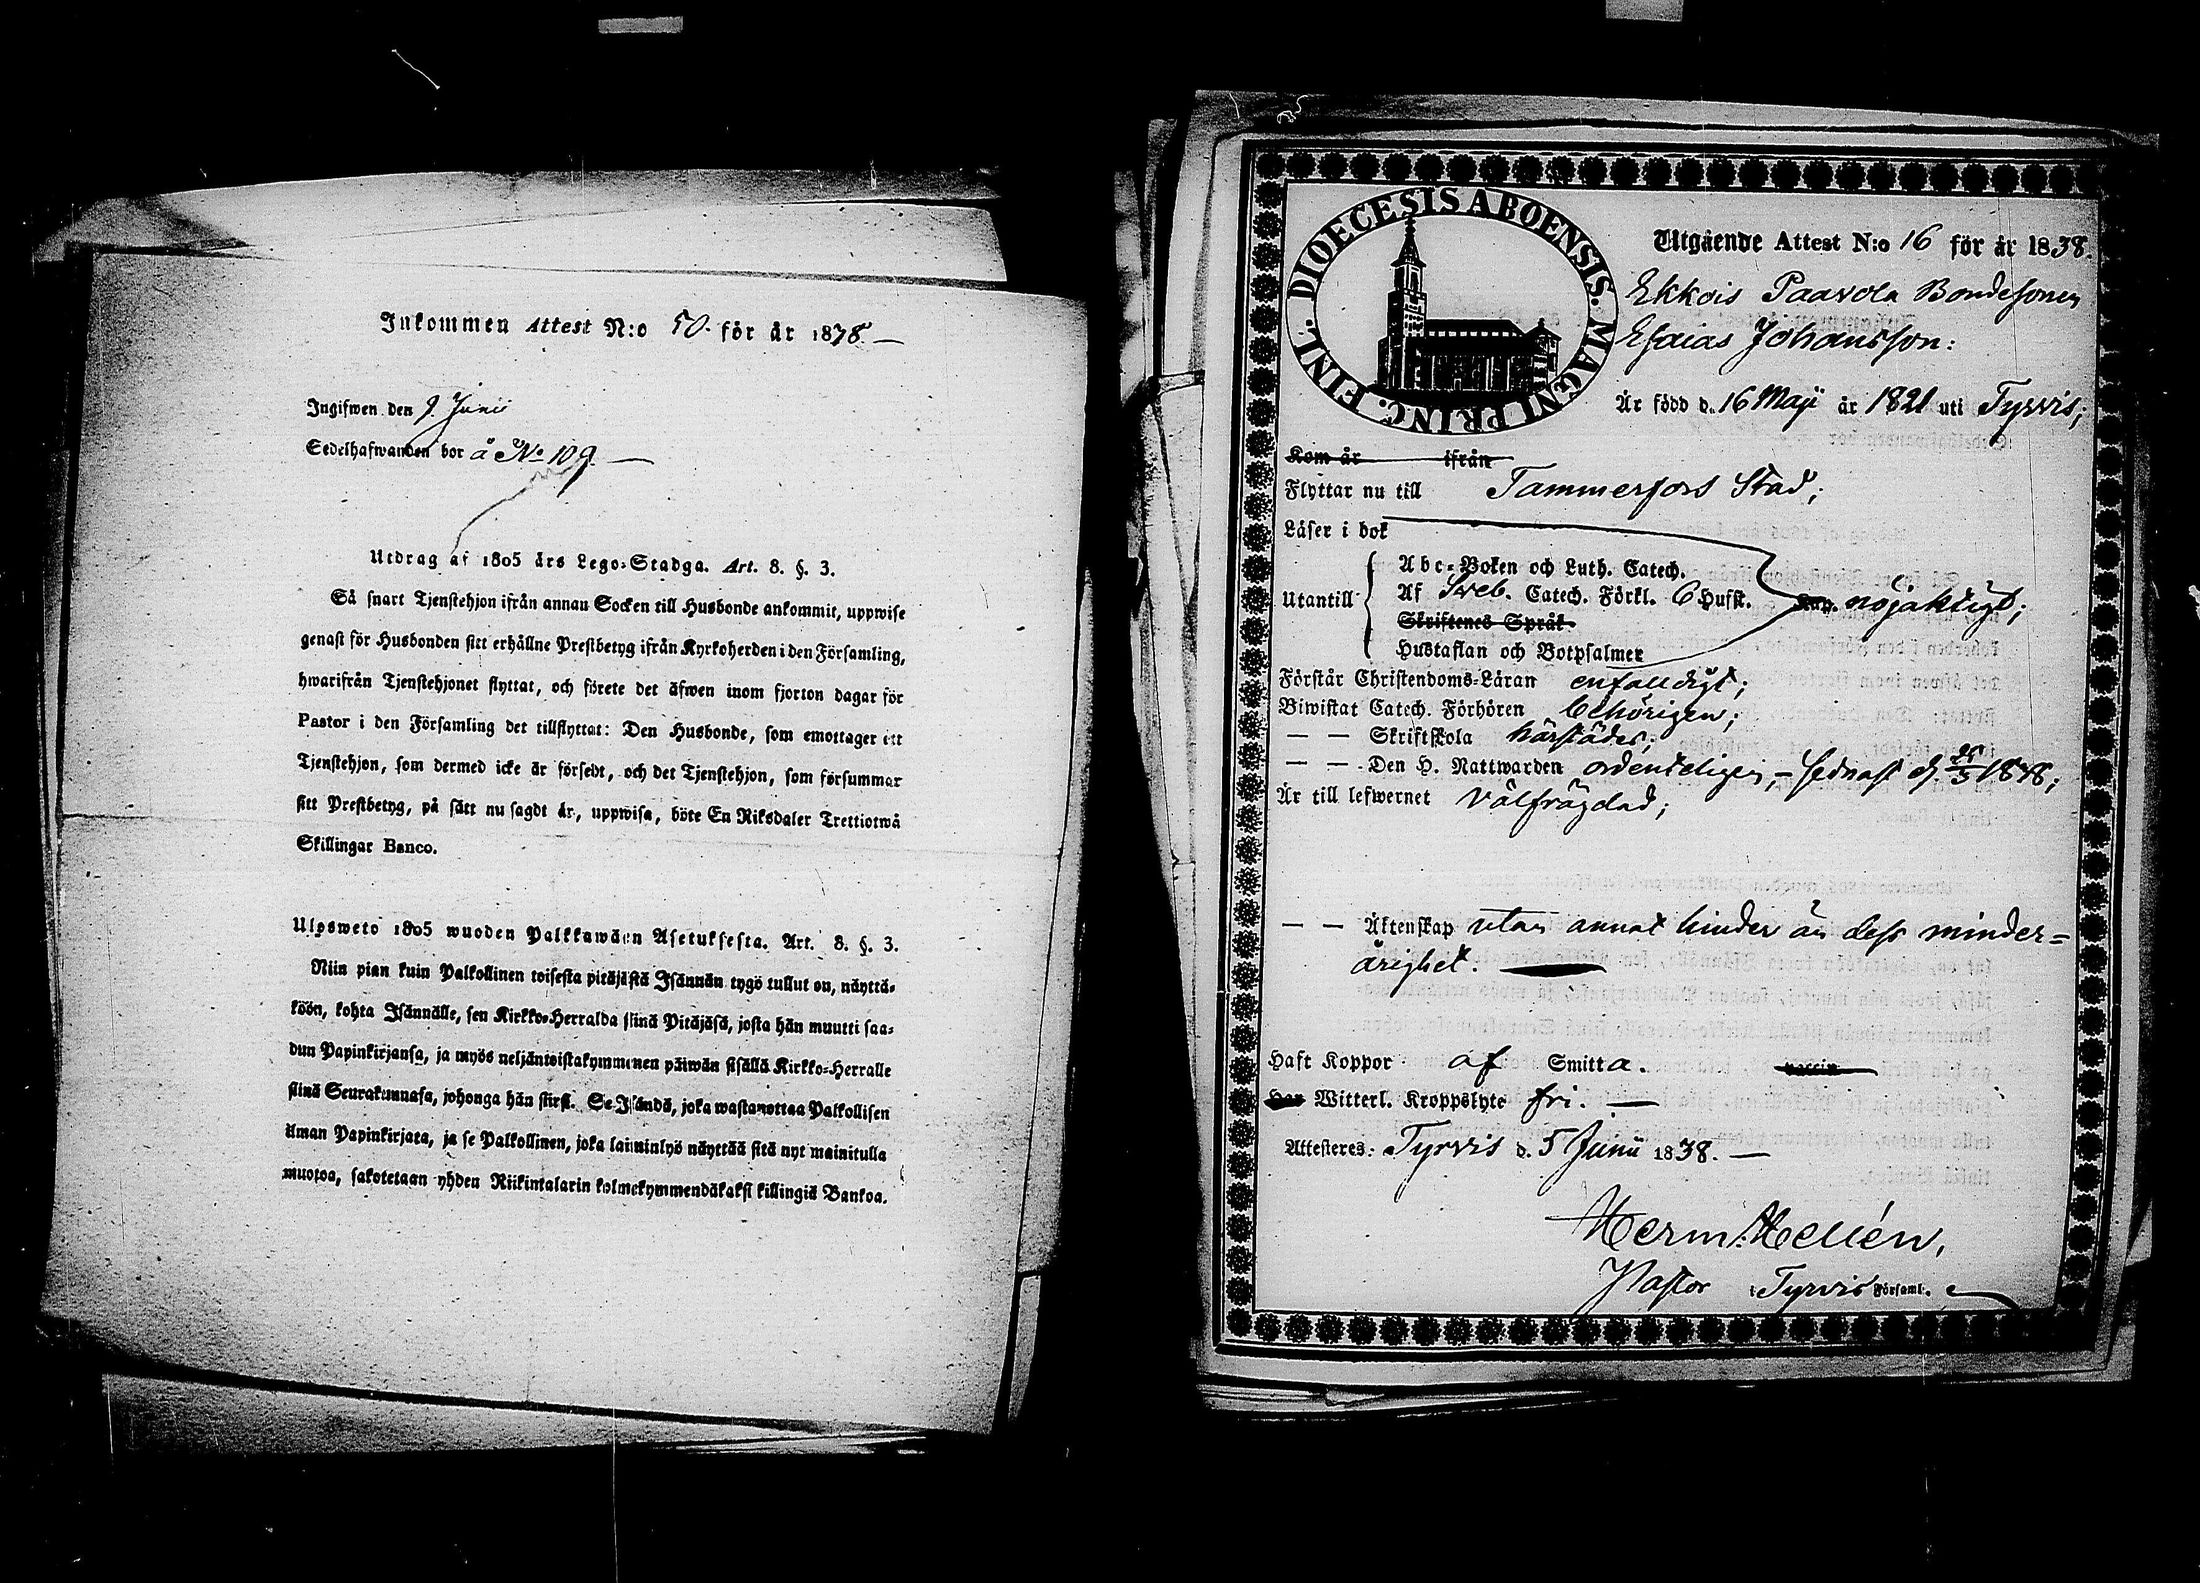 Inkommen Attest N:o 50. för år 1838. —
Ingifwen den 9 Junii
Sedelhafwanden bor å No 109. —
Utdrag af 1805 års Lego-Stadga. Art. 8. §. 3.
Så snart Tjenstehjon ifrån annan Socken till Husbonde ankommit, uppwise
genast för Husbonden sitt erhållne Prestbetyg ifrån Kyrkoherden i den Församling,
hwarifrån Tjenstehjonet flyttat, och förete det äfwen inom fjorton dagar för
Pastor i den Församling det tillflyttat: Den Husbonde, som emottager ett
Tjenstehjon, som dermed icke är försedt, och det Tjenstehjon, som försummar
sitt Prestbetyg, på sätt nu sagdt är, uppwisa, böte En Riksdaler Trettiotwå
Skillingar Banco.
Ulpsweto 1805 wuoden Palkkawäen Asetuksesta. Art. 8. §. 3.
Niin pian kuin Palkollinen toisesta pitäjästä Isännän tygö tullut on, näyttä-
köön, kohta Isännälle, sen Kirkko-Herralda siinä Pitäjäsä, josta hän muutti saa-
dun Papinkirjansa, ja myös neljäntoistakymmenen päiwän sisällä Kirkko-Herralle
siinä Seurakunnasa, johonga hän siirsi. Se Isändä, joka wastanottaa Palkollisen
ilman Papinkirjata, ja se Palkollinen, joka laiminlyö näyttää sitä nyt mainitulla
muotoa, sakotetaan yhden Riikintalarin kolmekymmendäkaksi killingiä Bankoa.
DIOECESIS ABOENSIS. MAGNI PRINC. FINL.
Utgående Attest N:o 16 för år 1838.
Ekkois Paavola Bondesonen
Esaias Johansson:
Är född d. 16 Maji år 1821 uti Tyrvis;
Kom år ifrån
Flyttar nu till Tammerfors Stad;
Läser i bok
Abc-Boken och Luth. Catech.
Utantill Af Sveb. Catech. Förkl. 6 Hufst. nöjaktigt;
Skriftenes Språk
Hustaflan och Botpsalmer
Förstår Christendoms-Läran enfaldigt;
Biwistat Catech. Förhören behörigen;
— — Skriftskola härstädes;
— — Den H. Nattwarden ordenteligen, — sednast d.
Är till lefwernet välfrägdad;
— — Äktenskap utan annat hinder än dess minder-
årighet. —
Haft Koppor af Smitta. vaccin
Har Witterl. Kroppslyte fri. —
Attesteres: Tyrvis d. 5 Junii 1838. —
Herm. Hellén,
Pastor i Tyrvis Församl.